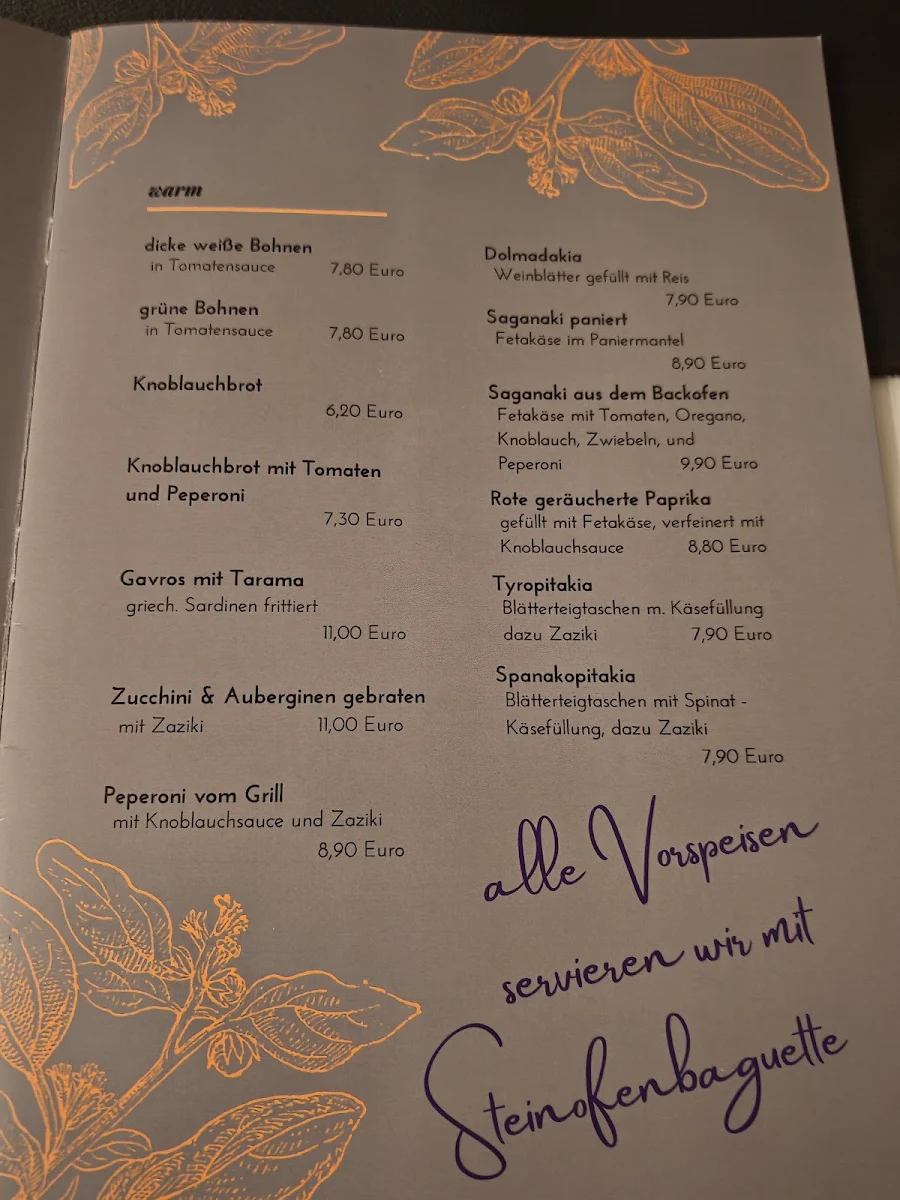 warm
dicke weiße Bohnen
in Tomatensauce 7,80 Euro
grüne Bohnen
in Tomatensauce 7,80 Euro
Knoblauchbrot
6,20 Euro
Knoblauchbrot mit Tomaten
und Peperoni
7,30 Euro
Gavros mit Tarama
griech. Sardinen frittiert
11,00 Euro
Zucchini & Auberginen gebraten
mit Zaziki 11,00 Euro
Peperoni vom Grill
mit Knoblauchsauce und Zaziki
8,90 Euro
Dolmadakia
Weinblätter gefüllt mit Reis
7,90 Euro
Saganaki paniert
Fetakäse im Paniermantel
8,90 Euro
Saganaki aus dem Backofen
Fetakäse mit Tomaten, Oregano,
Knoblauch, Zwiebeln, und
Peperoni 9,90 Euro
Rote geräucherte Paprika
gefüllt mit Fetakäse, verfeinert mit
Knoblauchsauce 8,80 Euro
Tyropitakia
Blätterteigtaschen m. Käsefüllung
dazu Zaziki 7,90 Euro
Spanakopitakia
Blätterteigtaschen mit Spinat -
Käsefüllung, dazu Zaziki
7,90 Euro
alle Vorspeisen
servieren wir mit
Steinofenbaguette